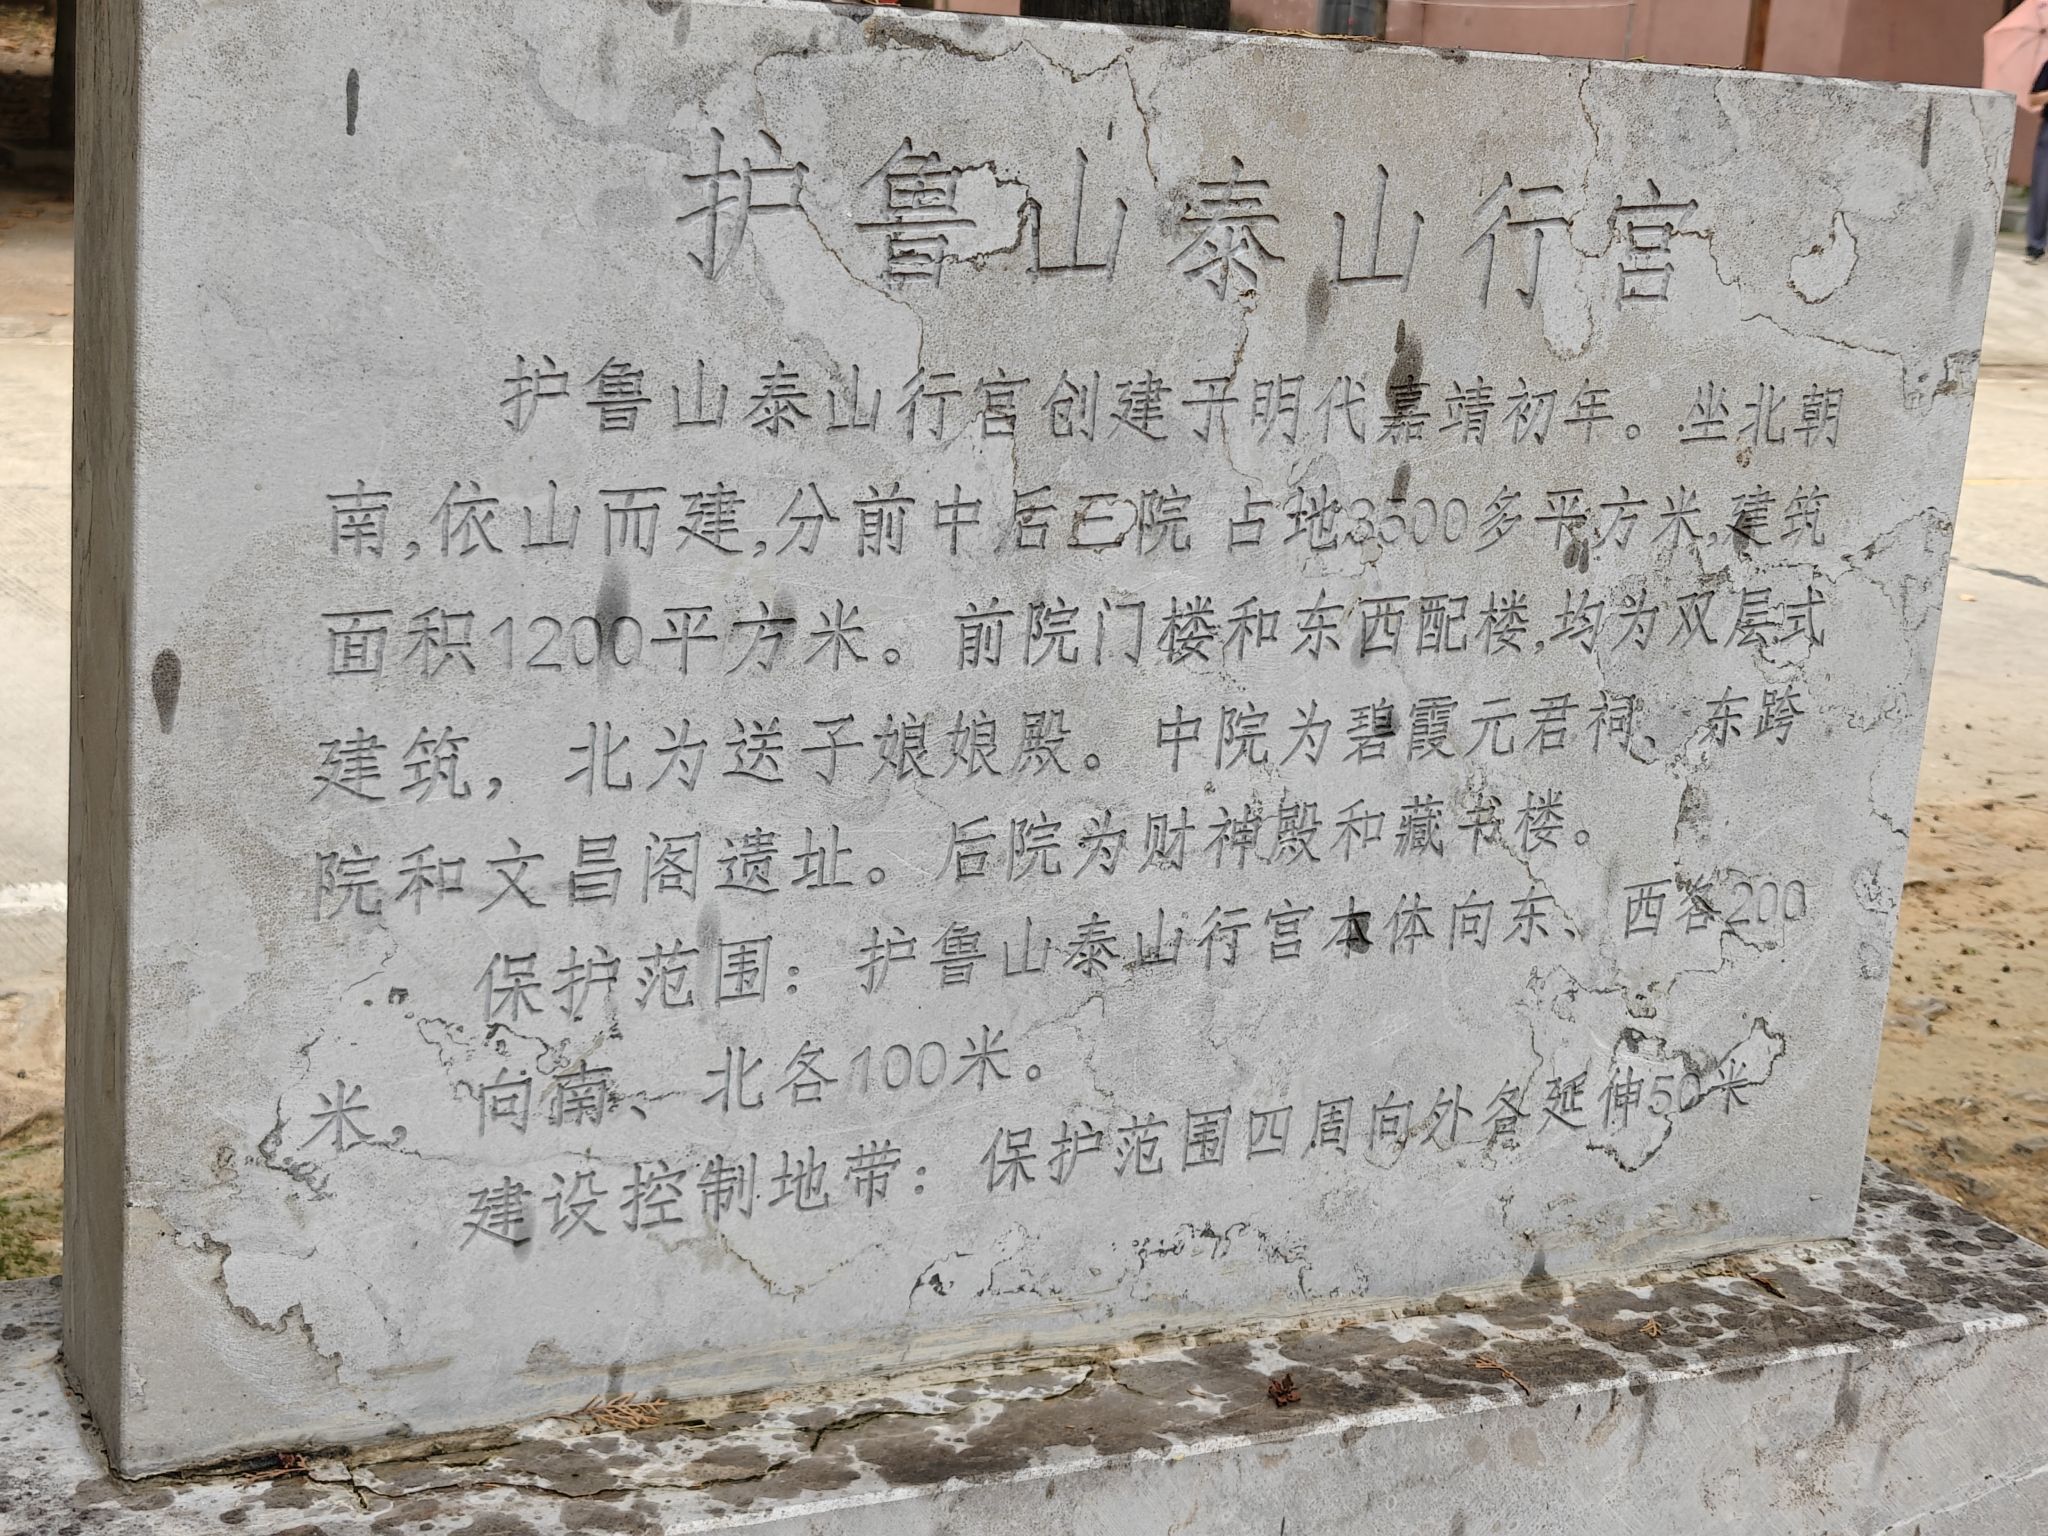 护鲁山泰山行宫
护鲁山泰山行宫创建于明代嘉靖初年。坐北朝
南,依山而建,分前中后三院 占地3500多平方米,建筑
面积1200平方米。前院门楼和东西配楼,均为双层式
建筑，北为送子娘娘殿。中院为碧霞元君祠、东跨
院和文昌阁遗址。后院为财神殿和藏书楼。
保护范围：护鲁山泰山行宫本体向东、西各200
米，向南、北各100米。
建设控制地带：保护范围四周向外各延伸50米